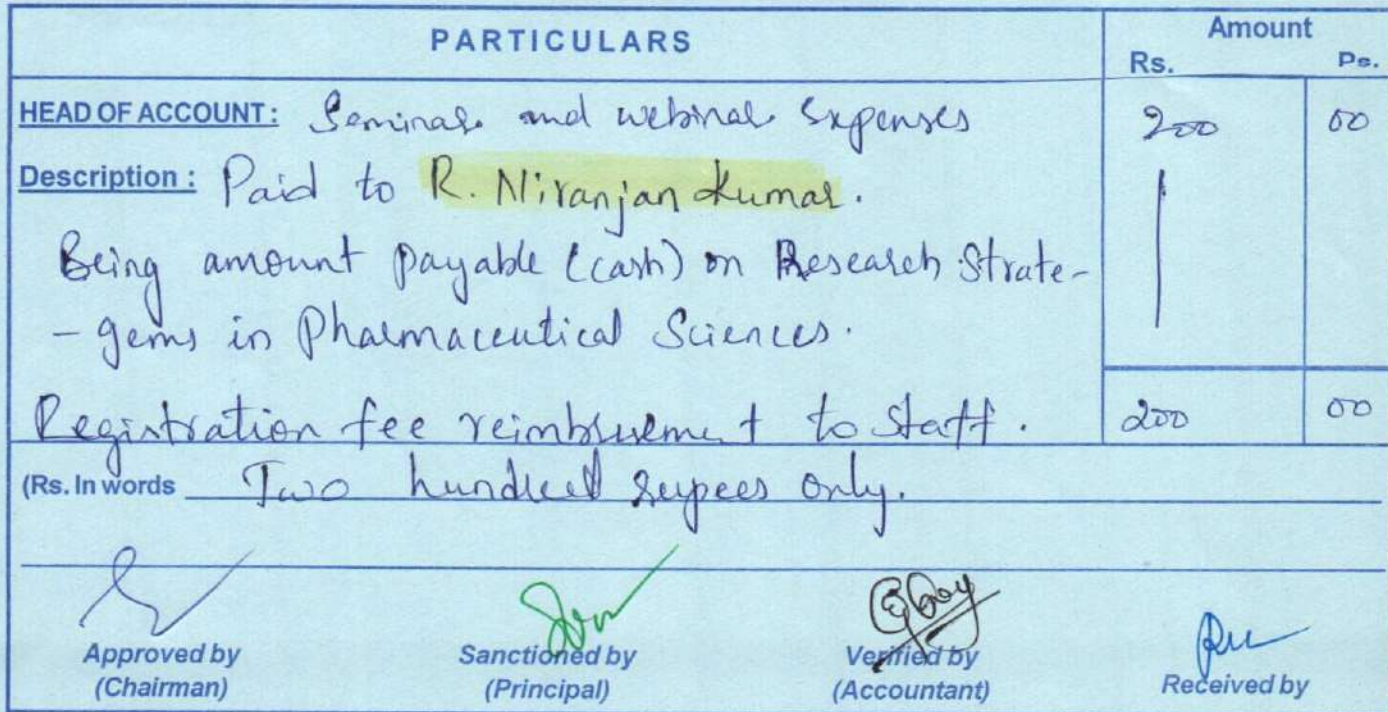 PARTICULARS Amount
Rs. Ps.
HEAD OF ACCOUNT: Seminar and webinar Expenses 200 00
Description: Paid to R. Niranjan Kumar.
Being amount payable (cash) on Research Strate-
-gems in Pharmaceutical Sciences.
Registration fee reimbursement to Staff. 200 00
(Rs. In words Two hundred rupees only.
Approved by Sanctioned by Verified by Received by
(Chairman) (Principal) (Accountant)